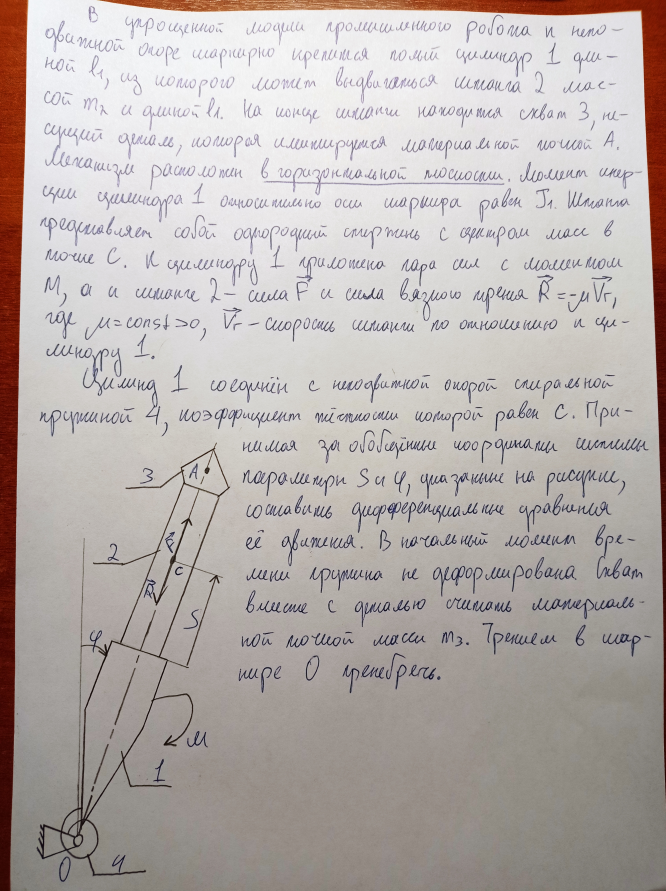 В упрощенной модели промышленного робота к непо-
движной опоре шарнирно крепится полый цилиндр 1 дли-
ной l₁, из которого может выдвигаться штанга 2 мас-
сой m₂ и длиной l₂. На конце штанги находится схват 3, не-
сущий деталь, которая имитируется материальной точкой A.
Механизм расположен в горизонтальной плоскости. Момент инер-
ции цилиндра 1 относительно оси шарнира равен J₁. Штанга
представляет собой однородный стержень с центром масс в
точке C. К цилиндру 1 приложена пара сил с моментом
M, а к штанге 2 – сила F⃗ и сила вязкого трения R⃗ = -μV⃗r,
где μ=const>0, V⃗r – скорость штанги по отношению к ци-
линдру 1.
Цилинд 1 соединён с неподвижной опорой спиральной
пружиной 4, коэффициент жёсткости которой равен c. При-
нимая за обобщённые координаты системы
параметры S и φ, указанные на рисунке,
составить дифференциальные уравнения
её движения. В начальный момент вре-
мени пружина не деформирована Схват
вместе с деталью считать материаль-
ной точкой массы m₃. Трением в шар-
нире O пренебречь.
3
A
2
F⃗
C
R⃗
S
φ
M
1
O
4